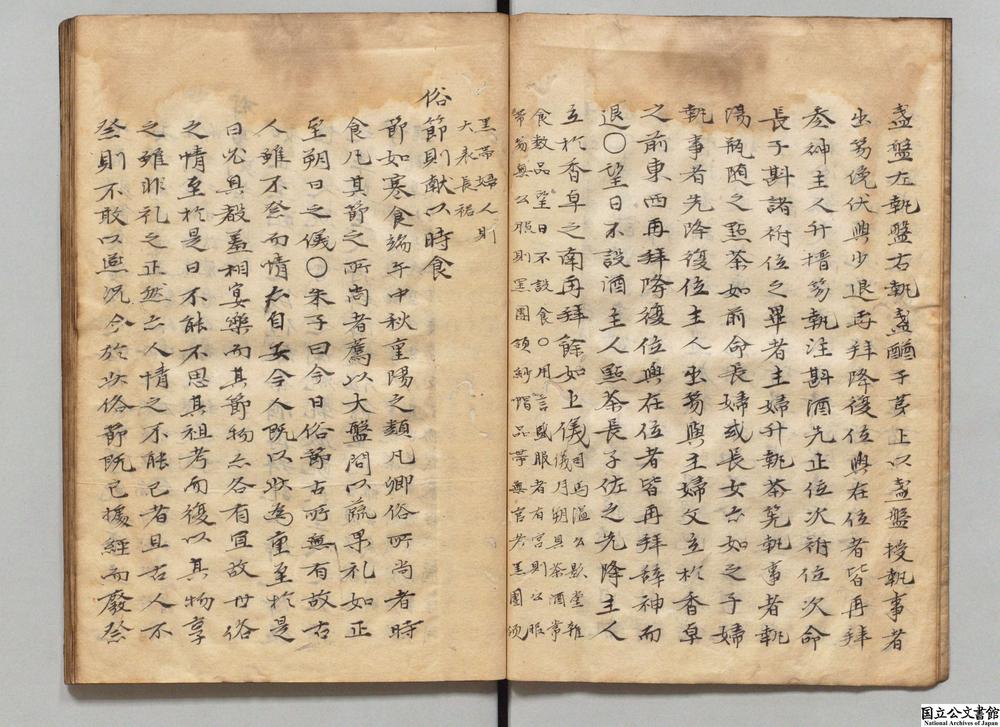 盞盤左執盤右執盞酹于茅上以盞盤授執事者
出笏俛伏興少退再拜降復位與在位者皆再拜
参神主人升搢笏執注斟酒先正位次祔位次命
長子斟諸祔位之畢者主婦升執茶筅執事者執
湯瓶随之㸃茶如前命長婦或長女亦如之子婦
執事者先降復位主人出笏與主婦分立於香卓
之前東西再拜降復位與在位者皆再拜辞神而
退〇望日不設酒主人㸃茶長子佐之先降主人
立於香卓之南再拜餘如上儀司馬温公影堂雜儀月朔具茶酒常
食数品望日不設食〇用言盛服者有官則公服
帯笏無公服則黒團領紗帽品帯無官者黒團領
黒帯婦人則
大衣長裙
俗節則献以時食
節如寒食端午中秋重陽之類凡郷俗所尚者時
食凡其節之所尚者薦以大盤間以蔬果礼如正
至朔日之儀〇朱子曰今日俗節古所無有故古
人雖不祭而情亦自安今人既以此為重至於是
日必具殽羞相宴樂而其節物亦各有宜故世俗
之情至於是日不能不思其祖考而復以其物享
之雖非礼之正然亦人情之不能已者且古人不
祭則不敢以燕况今於此俗節既已據經而廢祭
国立公文書館
National Archives of Japan